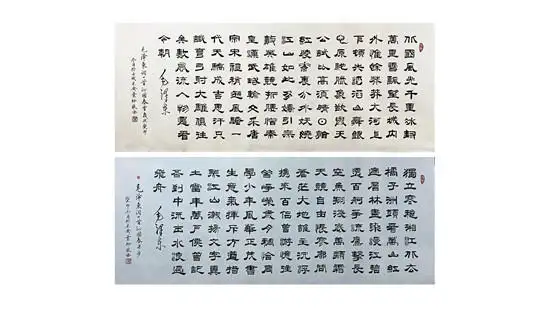 北國風光千里冰封
萬里雪飄望長城內
外惟餘莽莽大河上
下頓失滔滔山舞銀
蛇原馳蠟象欲與天
公試比高須晴日看
紅裝素裹分外妖嬈
江山如此多嬌引無
數英雄競折腰惜秦
皇漢武略輸文采唐
宗宋祖稍遜風騷一
代天驕成吉思汗只
識彎弓射大雕俱往
矣數風流人物還看
今朝 毛澤東
毛澤東詞一首沁園春雪
獨立寒秋湘江北去
橘子洲頭看萬山紅
遍層林盡染漫江碧
透百舸爭流鷹擊長
空魚翔淺底萬類霜
天競自由悵寥廓問
蒼茫大地誰主沉浮
攜來百侶曾遊憶往
昔崢嶸歲月稠恰同
學少年風華正茂書
生意氣揮斥方遒指
點江山激揚文字糞
土當年萬戶侯曾記
否到中流擊水浪遏
飛舟 毛澤東
毛澤東詞一首沁園春長沙